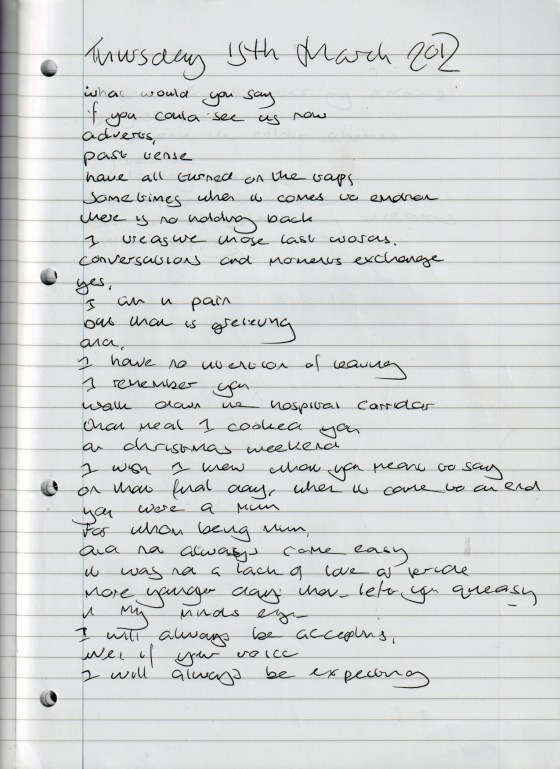 Thursday 15th March 2012
what would you say
if you could see us now
adverts,
past tense
have all turned on the taps
sometimes when it comes to
there is no holding back
I treasure those last words.
conversations and moments exchange
yes,
I am in pain
but that is greieving
and,
I have no intention of leaving
I remember you
walk down the hospital corridor
that meal I cooked you
on christmas weekend
I wish I knew what you meant to say
on that final day, when it came to an end
you were a mum
for whom being mum,
did not always come easy
it was not a lack of love or pride
more younger days that left you queasy
in my minds eye
I will always be accepting,
of your voice
I will always be expecting